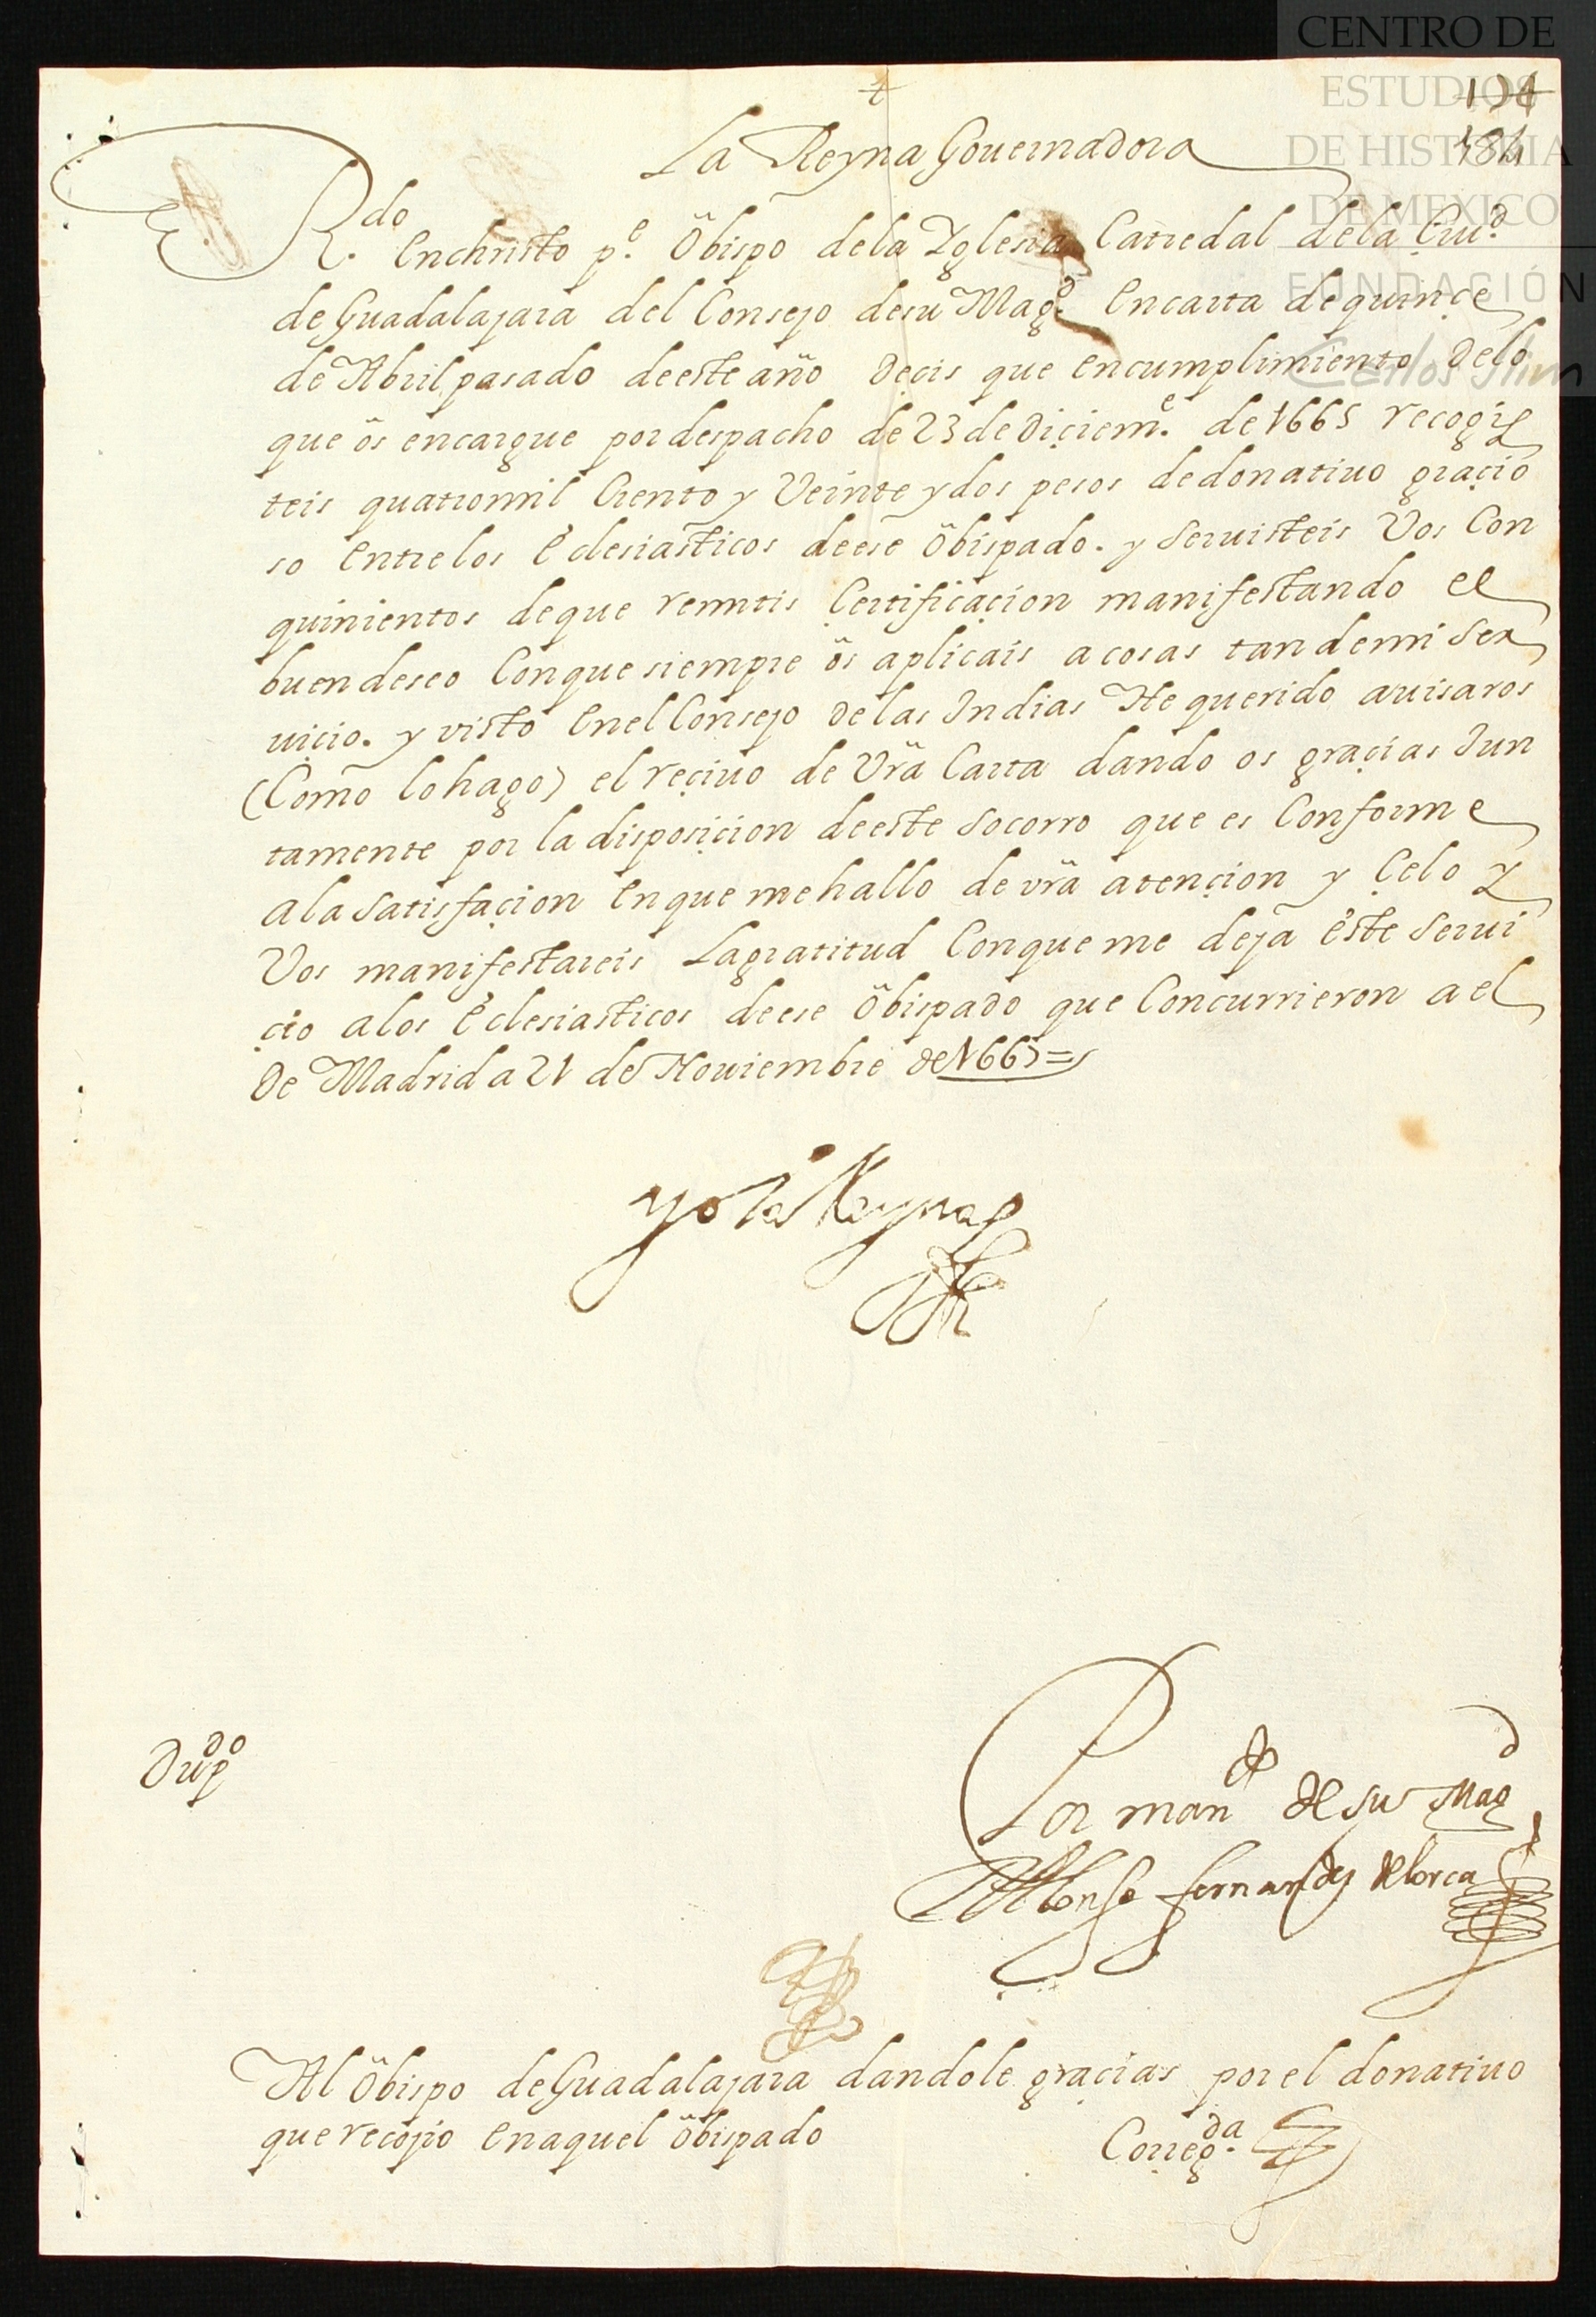 CENTRO DE
ESTUDIOS
DE HISTORIA
DE MEXICO
FUNDACIÓN
Carlos Slim
184
La Reyna Gouernadora
R.do enchristo p.e Obispo dela Yglesia Catredal dela Çiu.d
de Guadalajara del Consejo desu Mag.d encarta dequinçe
de Abril pasado deeste año deçis que encumplimiento delo
que os encargue pordespacho de 23 de Diçiem.e de 1665 recogis
teis quatromil Ciento y Veinte y dos pesos dedonatiuo graçio
so entrelos eclesiasticos deese Obispado. y seruisteis Vos Con
quinientos deque remitis Çertificaçion manifestando el
buen deseo Conque siempre os aplicais a cosas tan demi ser
uiçio. y visto enel Consejo delas Indias He querido auisaros
(Como lo hago) el reçiuo de Vrã Carta dando os graçias Jun
tamente por la disposiçion deeste socorro que es Conforme
ala satisfaçion en que mehallo de vrã atençion y Çelo y
Vos manifestareis La gratitud Conque me deja este serui
çio alos eclesiasticos deese Obispado que Concurrieron a el
De Madrid a 21 de Nouiembre de 1667=
yo la Reyna
Dup.do
Por man.do de su Mag.d
Alonso fernandez de lorca
Al Obispo de Guadalajara dandole graçias por el donatiuo
que recojio enaquel obispado
Correg.da